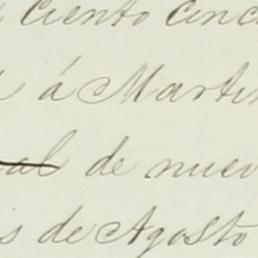 ciento cinc
á Martin
al de nuev
s de Agosto